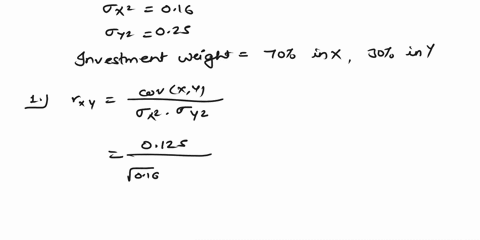 σx² = 0.16
σy² = 0.25
Investment weight = 70% in X, 30% in Y
1.) rxy = cov(X,Y) / σx² · σy2
= 0.125 / √0.16